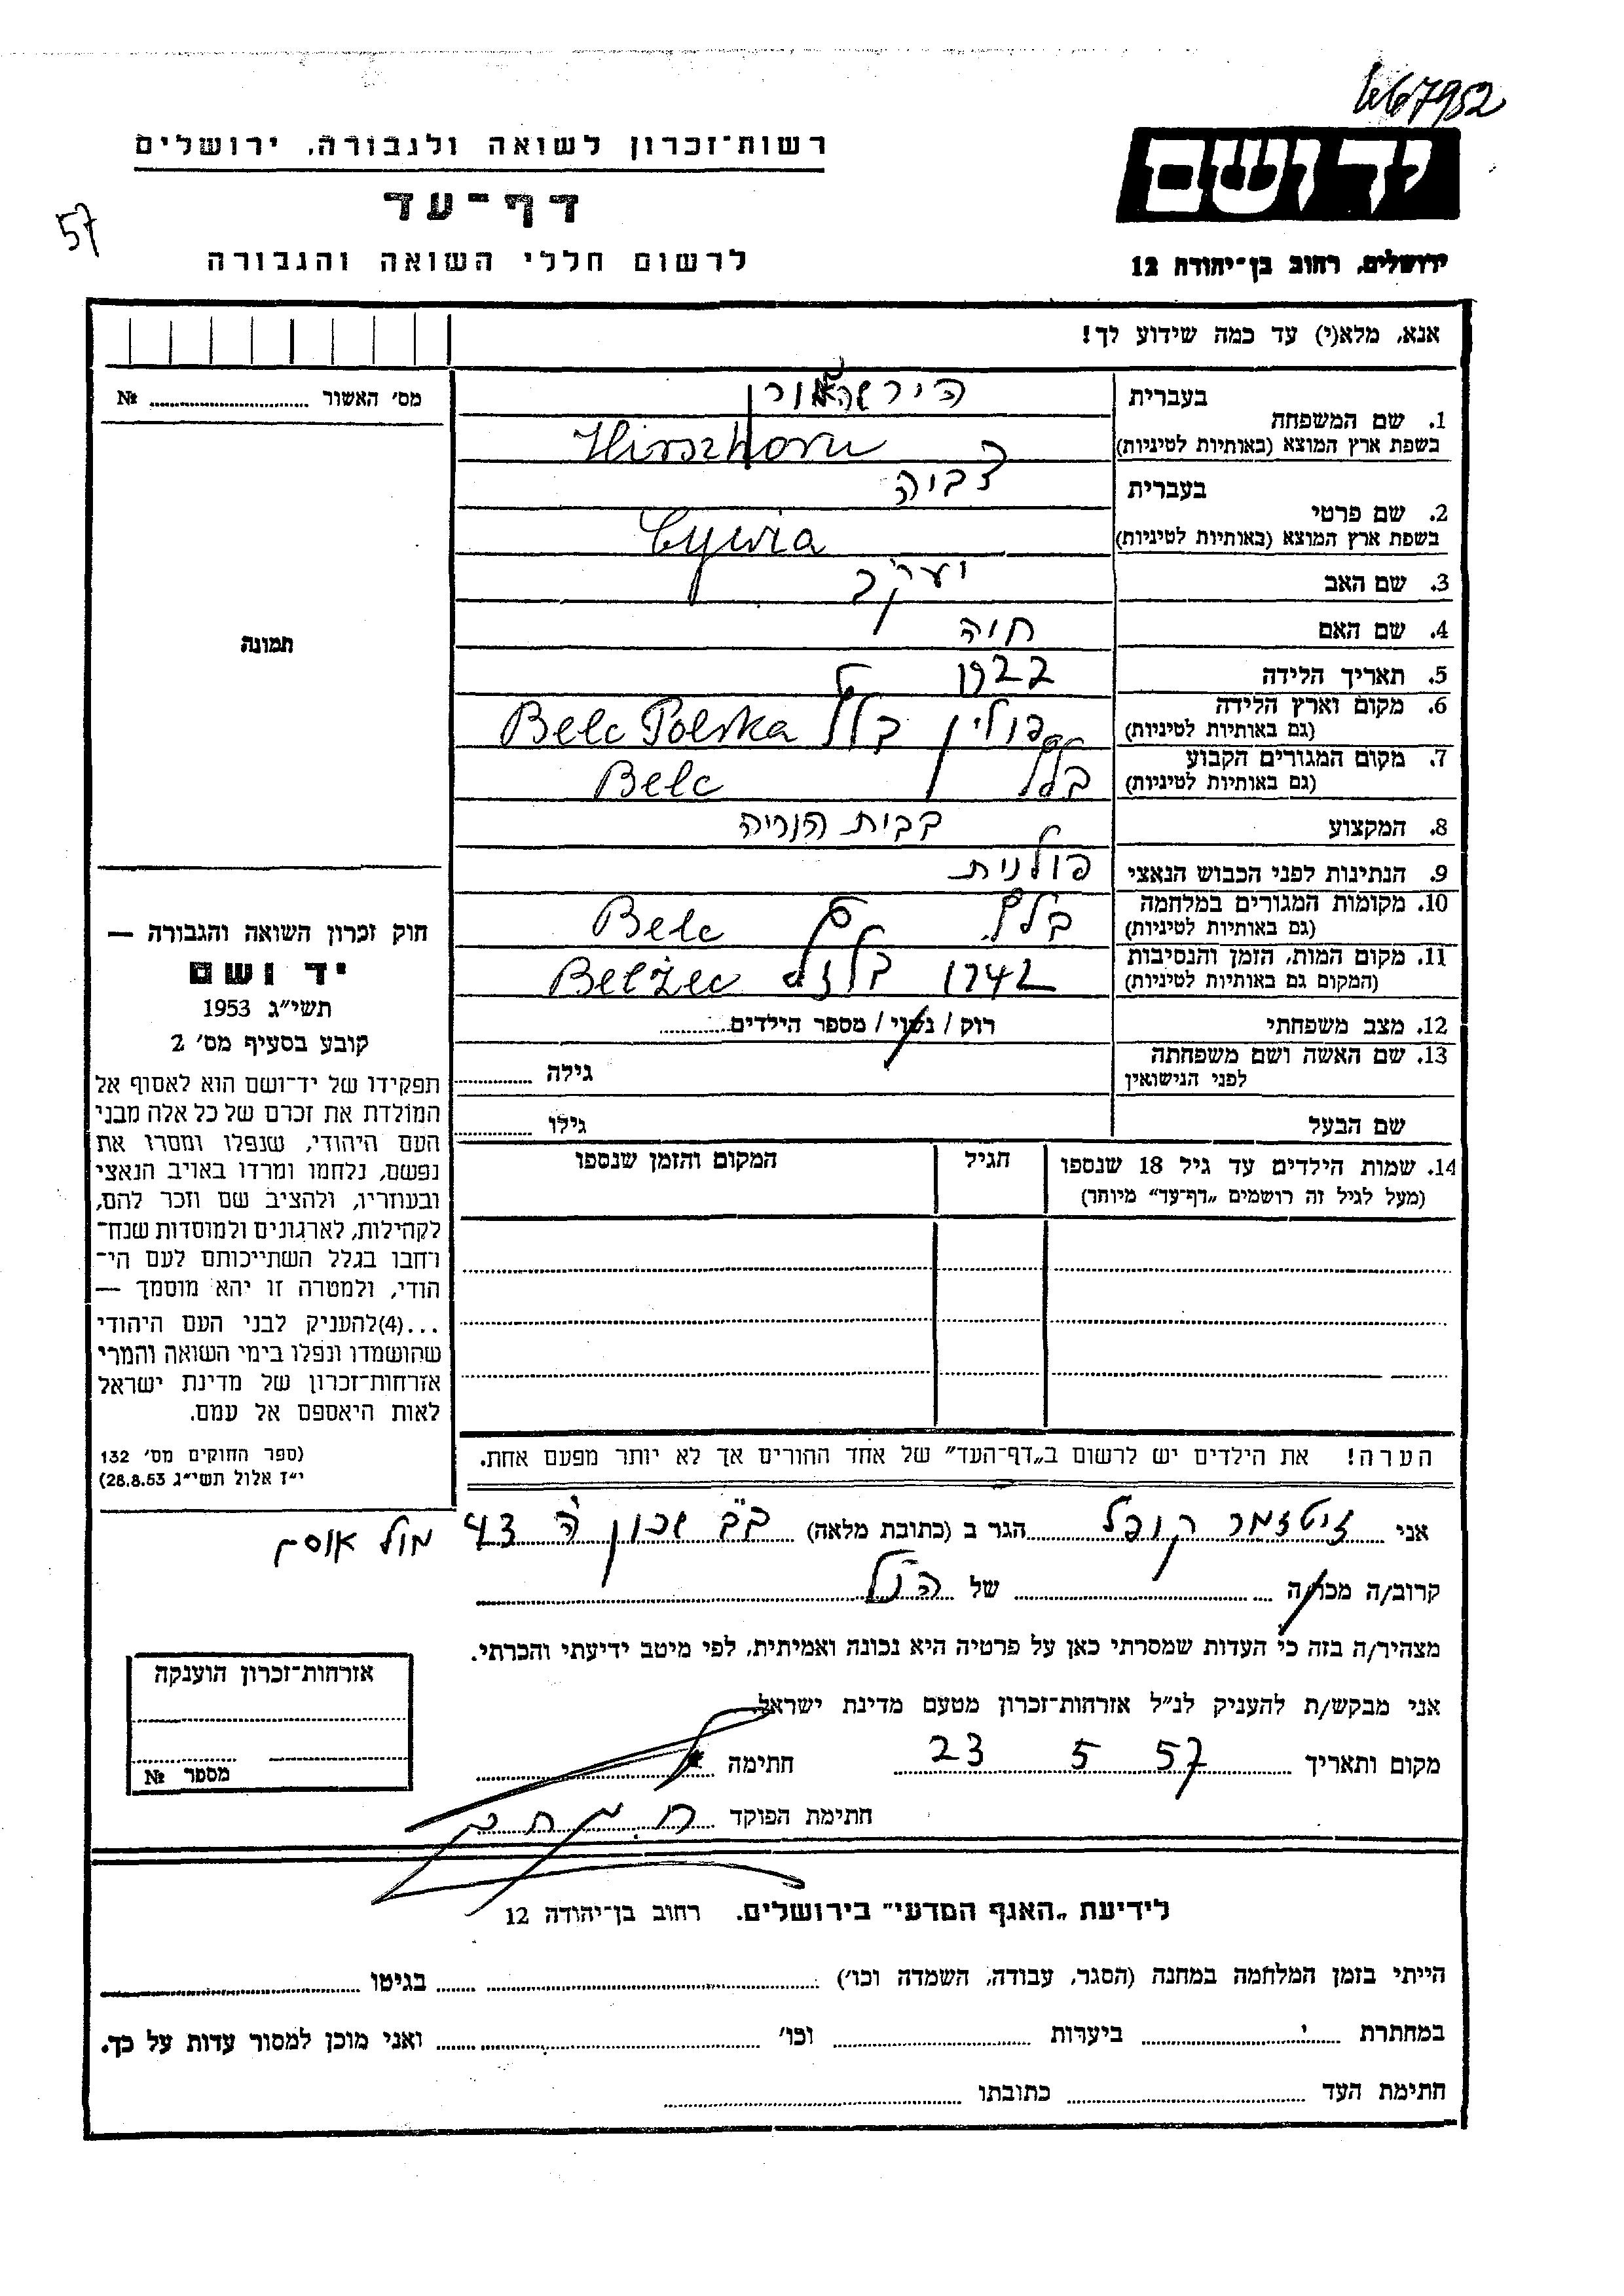 667952
רשות־זכרון לשואה ולגבורה, ירושלים
יד ושם
דף־עד
57
לרשום חללי השואה והגבורה
ירושלים, רחוב בן־יהודה 12
אנא, מלא(י) עד כמה שידוע לך!
מס׳ האשור № 
בעברית הירשהורן
1. שם המשפחה
בשפת ארץ המוצא (באותיות לטיניות) Hirszhorn
בעברית צביה
2. שם פרטי
בשפת ארץ המוצא (באותיות לטיניות) Cywia
3. שם האב יעקב
4. שם האם חוה
5. תאריך הלידה 1922
6. מקום וארץ הלידה
(גם באותיות לטיניות) פולין בלז Belc Polska
7. מקום המגורים הקבוע
(גם באותיות לטיניות) בלז Belc
8. המקצוע בבית הוריה
9. הנתינות לפני הכבוש הנאצי פולנית
10. מקומות המגורים במלחמה
(גם באותיות לטיניות) בלז Belc
11. מקום המות, הזמן והנסיבות
(המקום גם באותיות לטיניות) 1942 בלזץ Belżec
12. מצב משפחתי רוק / נשוי / מספר הילדים
13. שם האשה ושם משפחתה
לפני הנישואין גילה
שם הבעל גילו
14. שמות הילדים עד גיל 18 שנספו הגיל המקום והזמן שנספו
(מעל לגיל זה רושמים „דף־עד״ מיוחד)
הערה! את הילדים יש לרשום ב„דף־העד״ של אחד ההורים אך לא יותר מפעם אחת.
תמונה
חוק זכרון השואה והגבורה —
יד ושם
תשי״ג 1953
קובע בסעיף מס׳ 2
תפקידו של יד־ושם הוא לאסוף אל
המולדת את זכרם של כל אלה מבני
העם היהודי, שנפלו ומסרו את
נפשם, נלחמו ומרדו באויב הנאצי
ובעוזריו, ולהציב שם וזכר להם,
לקהילות, לארגונים ולמוסדות שנח־
רחבו בגלל השתייכותם לעם הי־
הודי, ולמטרה זו יהא מוסמך —
...(4)להעניק לבני העם היהודי
שהושמדו ונפלו בימי השואה והמרי
אזרחות־זכרון של מדינת ישראל
לאות היאספם אל עמם.
(ספר החוקים מס׳ 132
י״ז אלול תשי״ג 28.8.53)
אני זיטזמר קופל הגר ב (כתובת מלאה) בב שכון ה 43 מול אוסם
קרוב/ה מכר/ה של הנ״ל
מצהיר/ה בזה כי העדות שמסרתי כאן על פרטיה היא נכונה ואמיתית, לפי מיטב ידיעתי והכרתי.
אני מבקש/ת להעניק לנ״ל אזרחות־זכרון מטעם מדינת ישראל.
מקום ותאריך 23 5 57 חתימה
חתימת הפוקד
אזרחות־זכרון הוענקה
מספר №
לידיעת „האגף המדעי״ בירושלים. רחוב בן־יהודה 12
הייתי בזמן המלחמה במחנה (הסגר, עבודה, השמדה וכו׳) בגיטו
במחתרת ביערות וכו׳ ואני מוכן למסור עדות על כך.
חתימת העד כתובתו